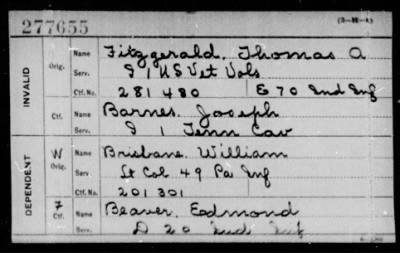 277655
(3-M-A)
INVALID
Orig. Name Fitzgerald, Thomas A
Serv. I 1 US Vet Vols
Ctf. No. 281 480 E 70 Ind Inf
Ctf. Name Barnes, Joseph
Serv. I 1 Tenn Cav
DEPENDENT
W Orig. Name Brisbane, William
Serv. Lt Col 49 Pa Inf
Ctf. No. 201 301
7 Ctf. Name Beaver, Edmond
Serv. D 20 Ind Inf